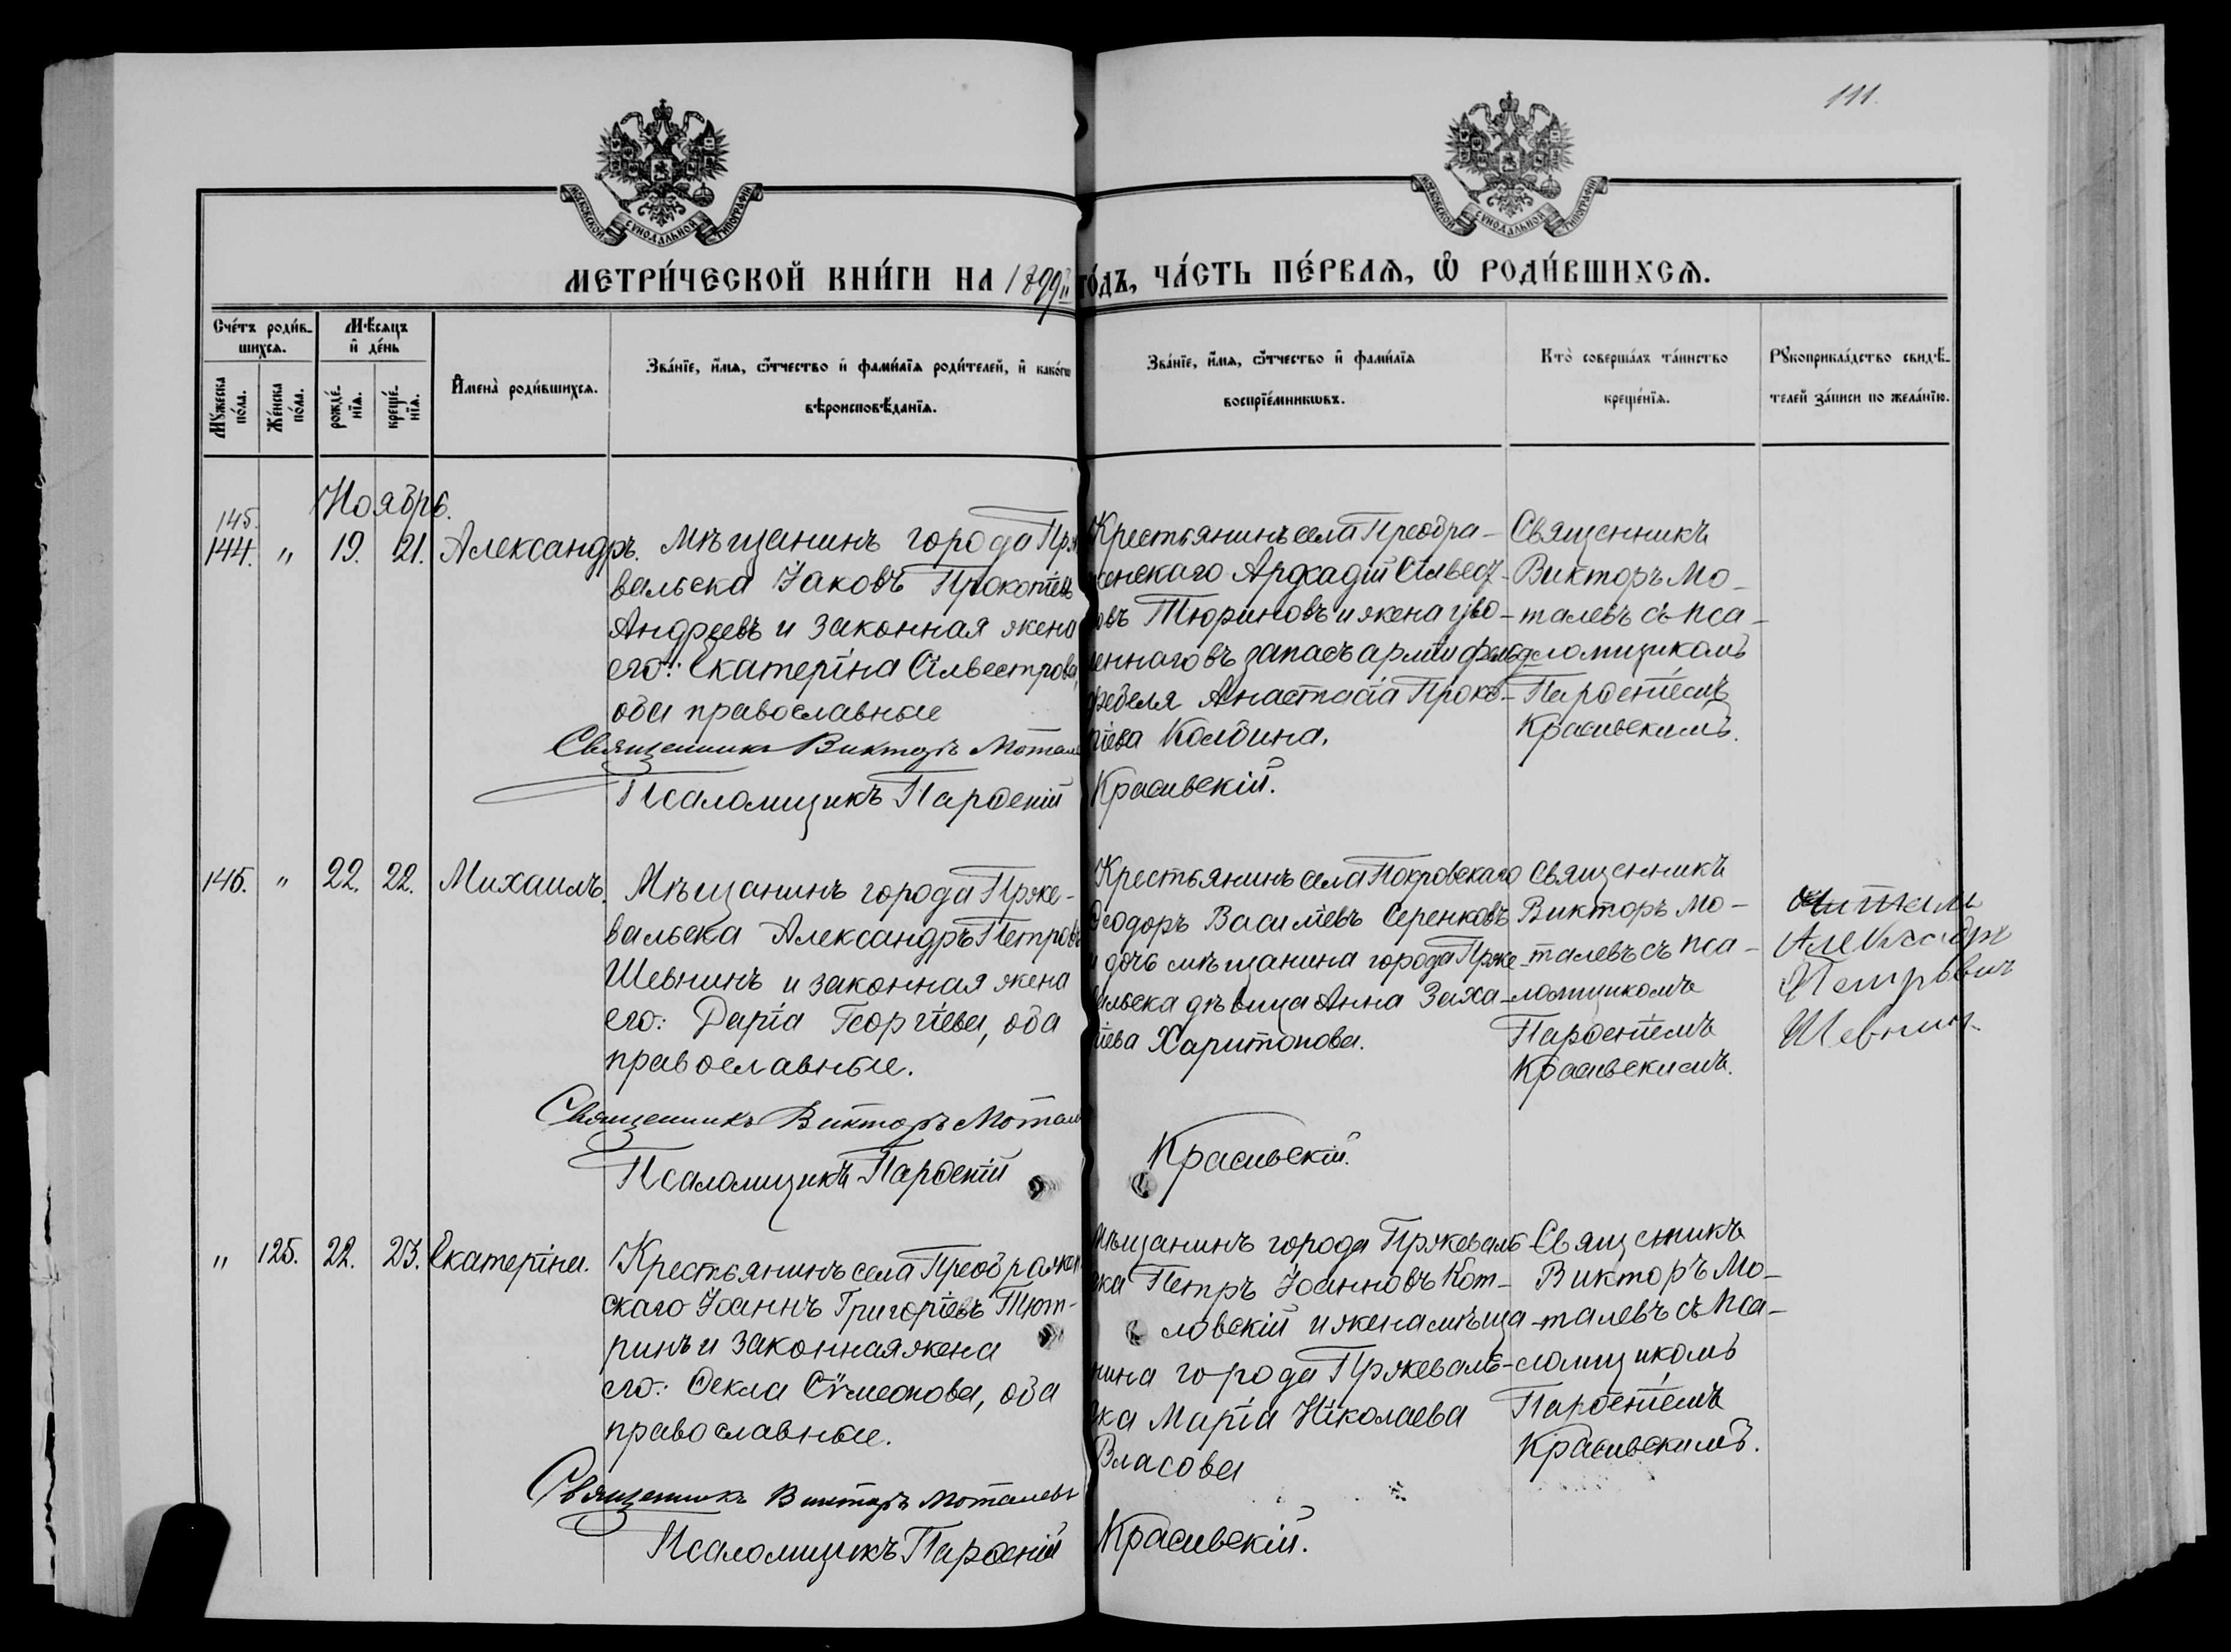 111.
МОСКОВСКОЙ СѴНОДАЛЬНОЙ ТИПОГРАФІИ
МОСКОВСКОЙ СѴНОДАЛЬНОЙ ТИПОГРАФІИ
МЕТРИ́ЧЕСКОЙ КНИ́ГИ НА 1899й ГО́ДЪ, ЧА́СТЬ ПЕ́РВАѦ, Ѡ҆ РОДИ́ВШИХСѦ.
Сче́тъ роди́в-
шихсѧ.
Мꙋ́жеска
по́ла.
Же́нска
по́ла.
Мѣ́сѧцъ
и҆ де́нь
рожде́-
нїѧ.
креще́-
нїѧ.
И҆мена̀ роди́вшихсѧ.
Зва́нїе, и҆́мѧ, ѻ҆́тчество и҆ фами́лїѧ роди́телей, и҆ како́гѡ
вѣроисповѣ́данїѧ.
Зва́нїе, и҆́мѧ, ѻ҆́тчество и҆ фами́лїѧ
воспрїе́мникѡвъ.
Кто̀ соверша́лъ та́инство
креще́нїѧ.
Рꙋкоприкла́дство свидѣ́-
телей за́писи по жела́нїю.
Ноябрь.
145.
144. " 19. 21. Александръ.
Мѣщанинъ города Прже
вальска Іаковъ Прокопіевъ
Андреевъ и законная жена
его: Екатеріна Сільвестрова,
оба православные
Священникъ Викторъ Моталевъ
Псаломщикъ Парѳеній
Крестьянинъ села Преобра-
женскаго Аркадій Сільвест-
овъ Тюриновъ и жена уво-
леннаго въ запасъ арміи фельд-
фебеля Анастасіа Проко-
піева Колбина.
Красивскій.
Священникъ
Викторъ Мо-
талевъ съ пса-
ломщикомъ
Парѳеніемъ
Красивскимъ.
146. " 22. 22. Михаилъ.
Мѣщанинъ города Прже-
вальска Александръ Петровъ
Шевнинъ и законная жена
его: Даріа Георгіева, оба
православные.
Священникъ Викторъ Моталевъ
Псаломщикъ Парѳеній
Крестьянинъ села Покровскаго
Ѳеодоръ Василіевъ Серенковъ
и дочь мѣщанина города Прже-
вальска дѣвица Анна Заха-
ріева Харитонова.
Красивскій.
Священникъ
Викторъ Мо-
талевъ съ пса-
ломщикомъ
Парѳеніемъ
Красивскимъ.
Александръ
Петрович
Шевнин
" 125. 22. 23. Екатеріна.
Крестьянинъ села Преображен
скаго Іоаннъ Григоріевъ Тют-
ринъ и законная жена
его: Ѳекла Сѵмеонова, оба
православные.
Священникъ Викторъ Моталевъ
Псаломщикъ Парѳеній
Мѣщанинъ города Пржеваль
ска Петръ Іоанновъ Кот-
ловскій и жена мѣща-
нина города Пржеваль-
ска Маріа Ніколаева
Власова
Красивскій.
Священникъ
Викторъ Мо-
талевъ съ пса-
ломщикомъ
Парѳеніемъ
Красивскимъ.